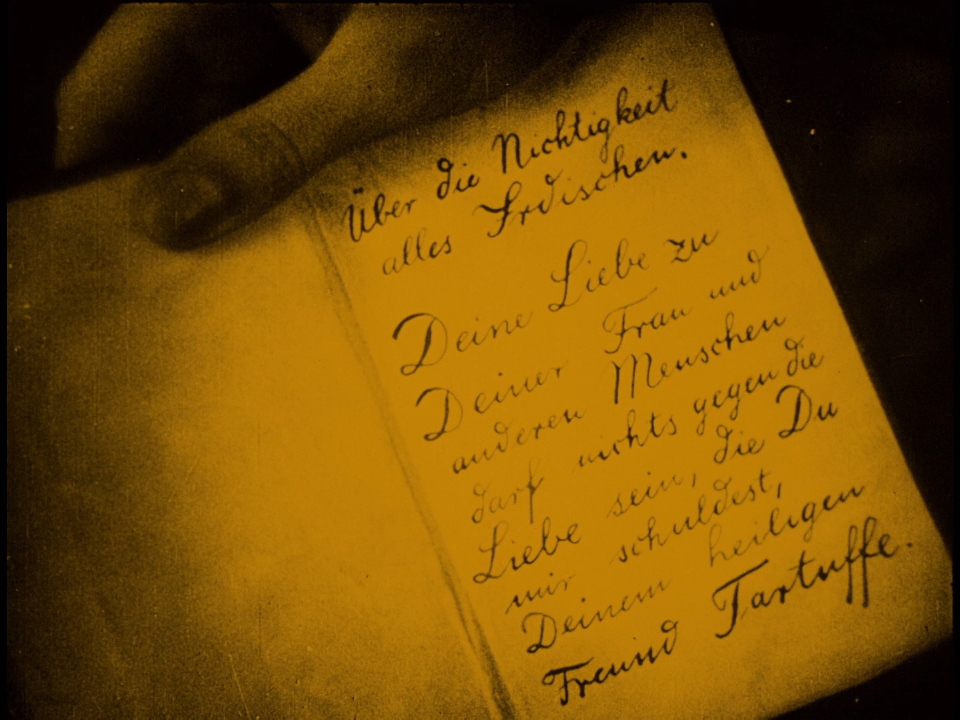 Über die Nichtigkeit
alles Irdischen.
Deine Liebe zu
Deiner Frau und
anderen Menschen
darf nichts gegen die
Liebe sein, die Du
mir schuldest,
Deinem heiligen
Freund Tartuffe.